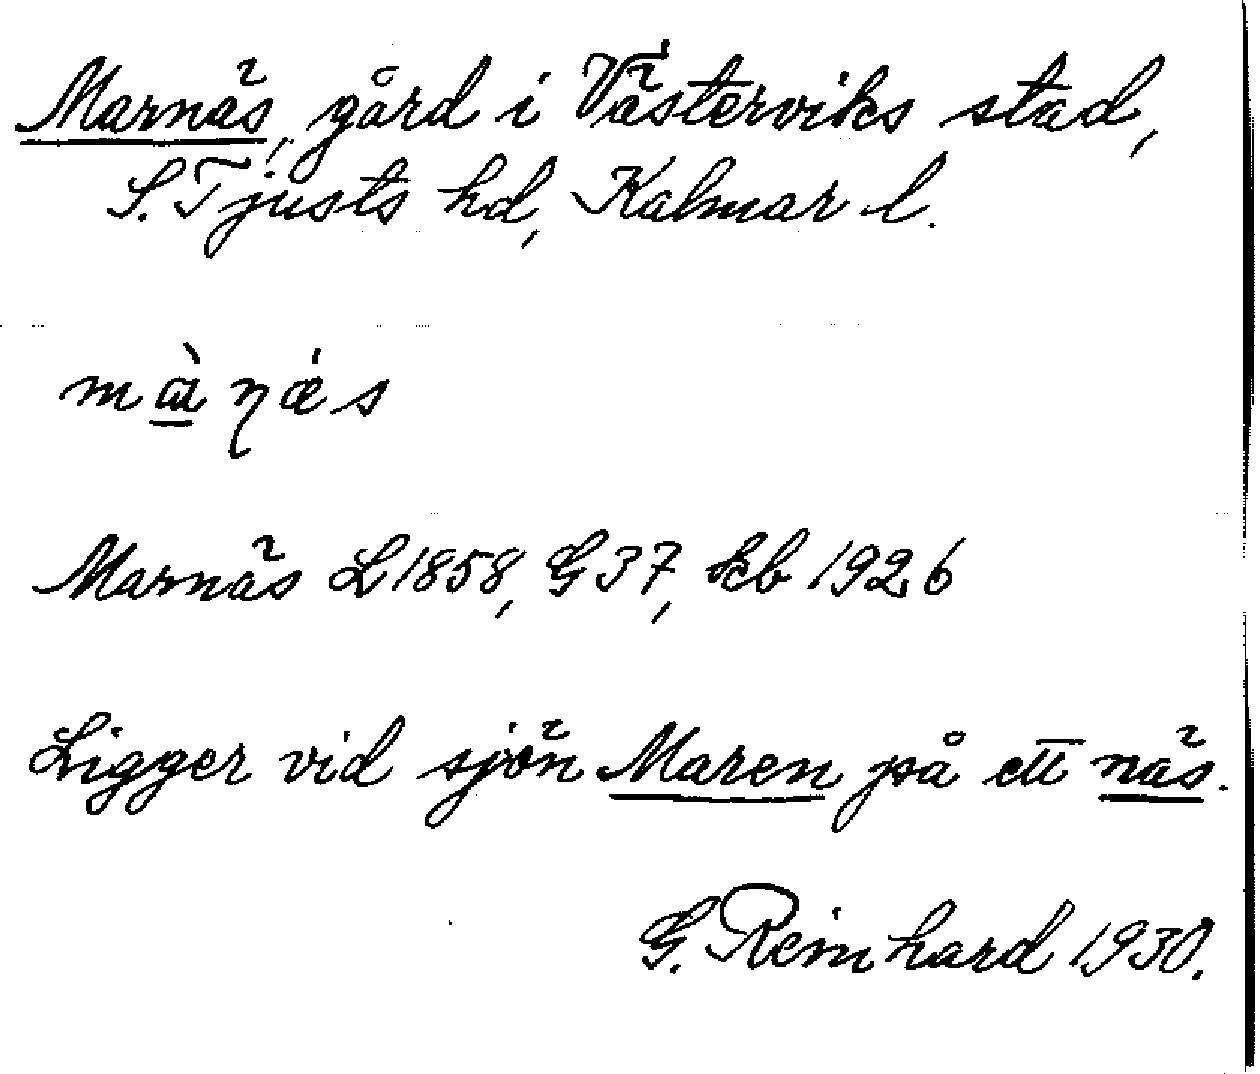 Marnäs, gård i Västerviks stad,
S. Tjusts hd, Kalmar l.
mɑ̀ɳǽs
Marnäs L 1858, G 37, kb 1926
Ligger vid sjön Maren på ett näs.
G. Reinhard 1930.